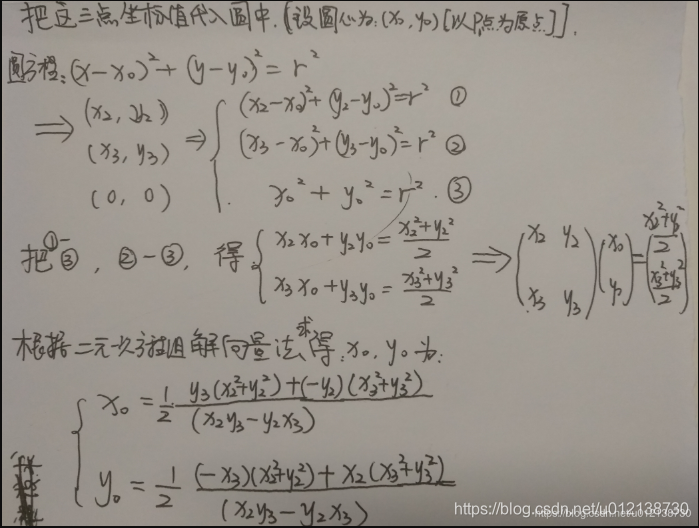 把这三点坐标值代入圆中.(设圆心为:(x₀, y₀)[以P₁点为原点]).
圆方程:(x-x₀)²+(y-y₀)²=r²
⇒ (x₂, y₂) (x₃, y₃) (0, 0) ⇒ {
(x₂-x₀)²+(y₂-y₀)²=r² ①
(x₃-x₀)²+(y₃-y₀)²=r² ②
x₀²+y₀²=r². ③
把①-③, ②-③, 得 {
x₂x₀+y₂y₀=(x₂²+y₂²)/2
x₃x₀+y₃y₀=(x₃²+y₃²)/2
⇒ (x₂ y₂; x₃ y₃)(x₀; y₀)=((x₂²+y₂²)/2; (x₃²+y₃²)/2)
根据二元一次方程组解向量法求得:x₀, y₀为:
{ x₀ = 1/2 (y₃(x₂²+y₂²)+(-y₂)(x₃²+y₃²))/(x₂y₃-y₂x₃)
y₀ = 1/2 ((-x₃)(x₂²+y₂²)+x₂(x₃²+y₃²))/(x₂y₃-y₂x₃)
https://blog.csdn.net/u012138730
https://blog.csdn.net/u012138730